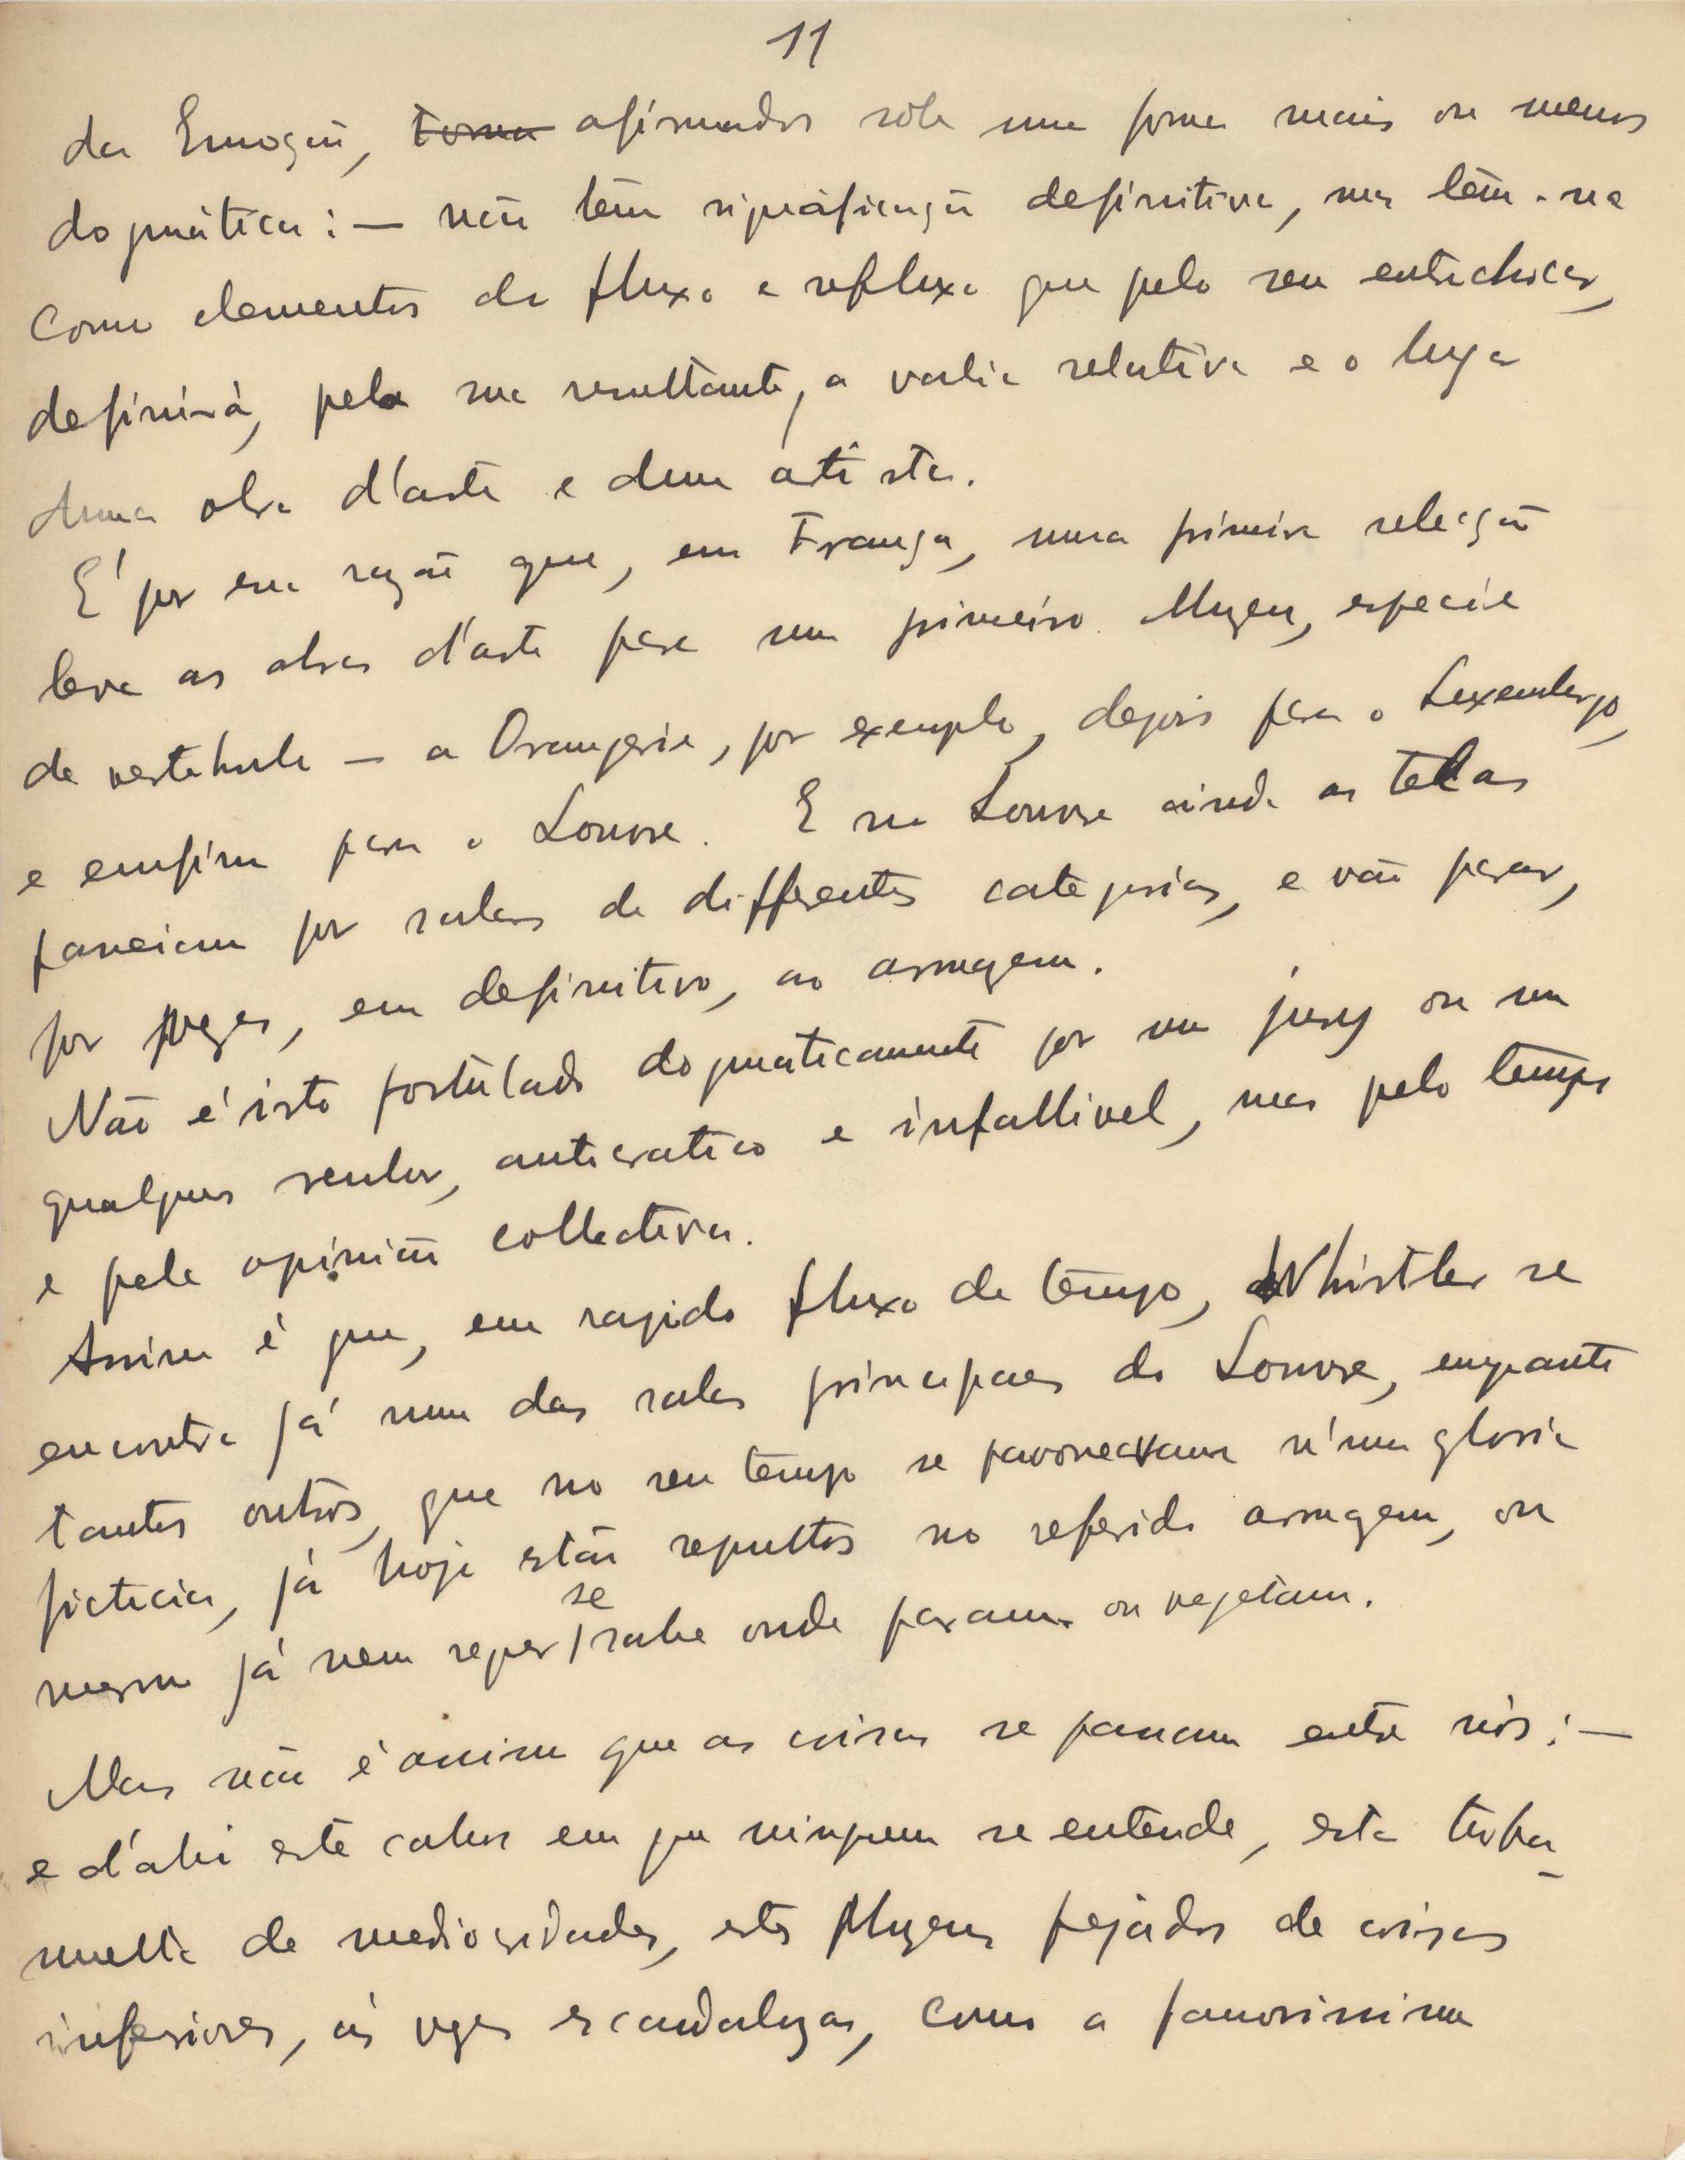 11
da Emoção, ~~toma~~ afirmados sôb uma forma mais ou menos
dogmática: — não têm significação definitiva, mas têm-na
como elementos de fluxo e refluxo que pelo seu entrechocar,
definirá, pela sua resultante, a valia relativa e o lugar
duma obra d'arte e dum artista.
É por essa razão que, em França, numa primeira selecção
leva as obras d'arte para um primeiro Muzeu, especie
de vestibulo — a Orangerie, por exemplo, depois para o Luxemburgo,
e emfim para o Louvre. E no Louvre ainda as telas
passeiam por salas de differentes categorias, e vão parar,
por vezes, em definitivo, ao armazem.
Não é isto postulado dogmaticamente por um jury ou um
qualquer senhor, autocratico e infallivel, mas pelo tempo
e pela opinião collectiva.
Assim é que, em rapido fluxo de tempo, Whistler se
encontra já numa das salas principaes do Louvre, emquanto
tantos outros, que no seu tempo se pavoneavam n'uma gloria
ficticia, já hoje estão sepultos no referido armazem, ou
mesmo já nem sequer se sabe onde param ou vegetam.
Mas não é assim que as coisas se passam entre nós: —
e d'ahi este cahos em que ninguem se entende, esta turba-
multa de mediocridades, estes Muzeus pejados de coisas
inferiores, ás vezes escandalozas, como a famosissima